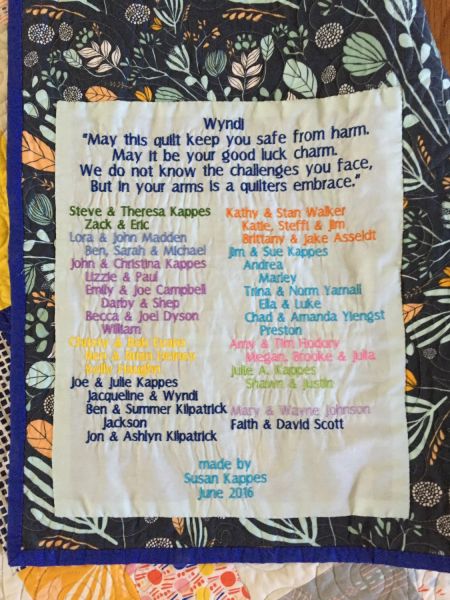 Wyndi
"May this quilt keep you safe from harm.
May it be your good luck charm.
We do not know the challenges you face,
But in your arms is a quilters embrace."
Steve & Theresa Kappes
Zack & Eric
Lora & John Madden
Ben, Sarah & Michael
John & Christina Kappes
Lizzie & Paul
Emily & Joe Campbell
Darby & Shep
Becca & Joel Dyson
William
&
&
Kelly
Joe & Julie Kappes
Jacqueline & Wyndi
Ben & Summer Kilpatrick
Jackson
Jon & Ashlyn Kilpatrick
Kathy & Stan Walker
Katie, Steffi & Jim
Brittany & Jake Asseldt
Jim & Sue Kappes
Andrea
Marley
Trina & Norm Yarnall
Ella & Luke
Chad & Amanda Yiengst
Preston
Amy & Tim Hodory
Megan, Brooke & Julia
Julie A. Kappes
Shawn & Justin
Mary & Wayne Johnson
Faith & David Scott
made by
Susan Kappes
June 2016